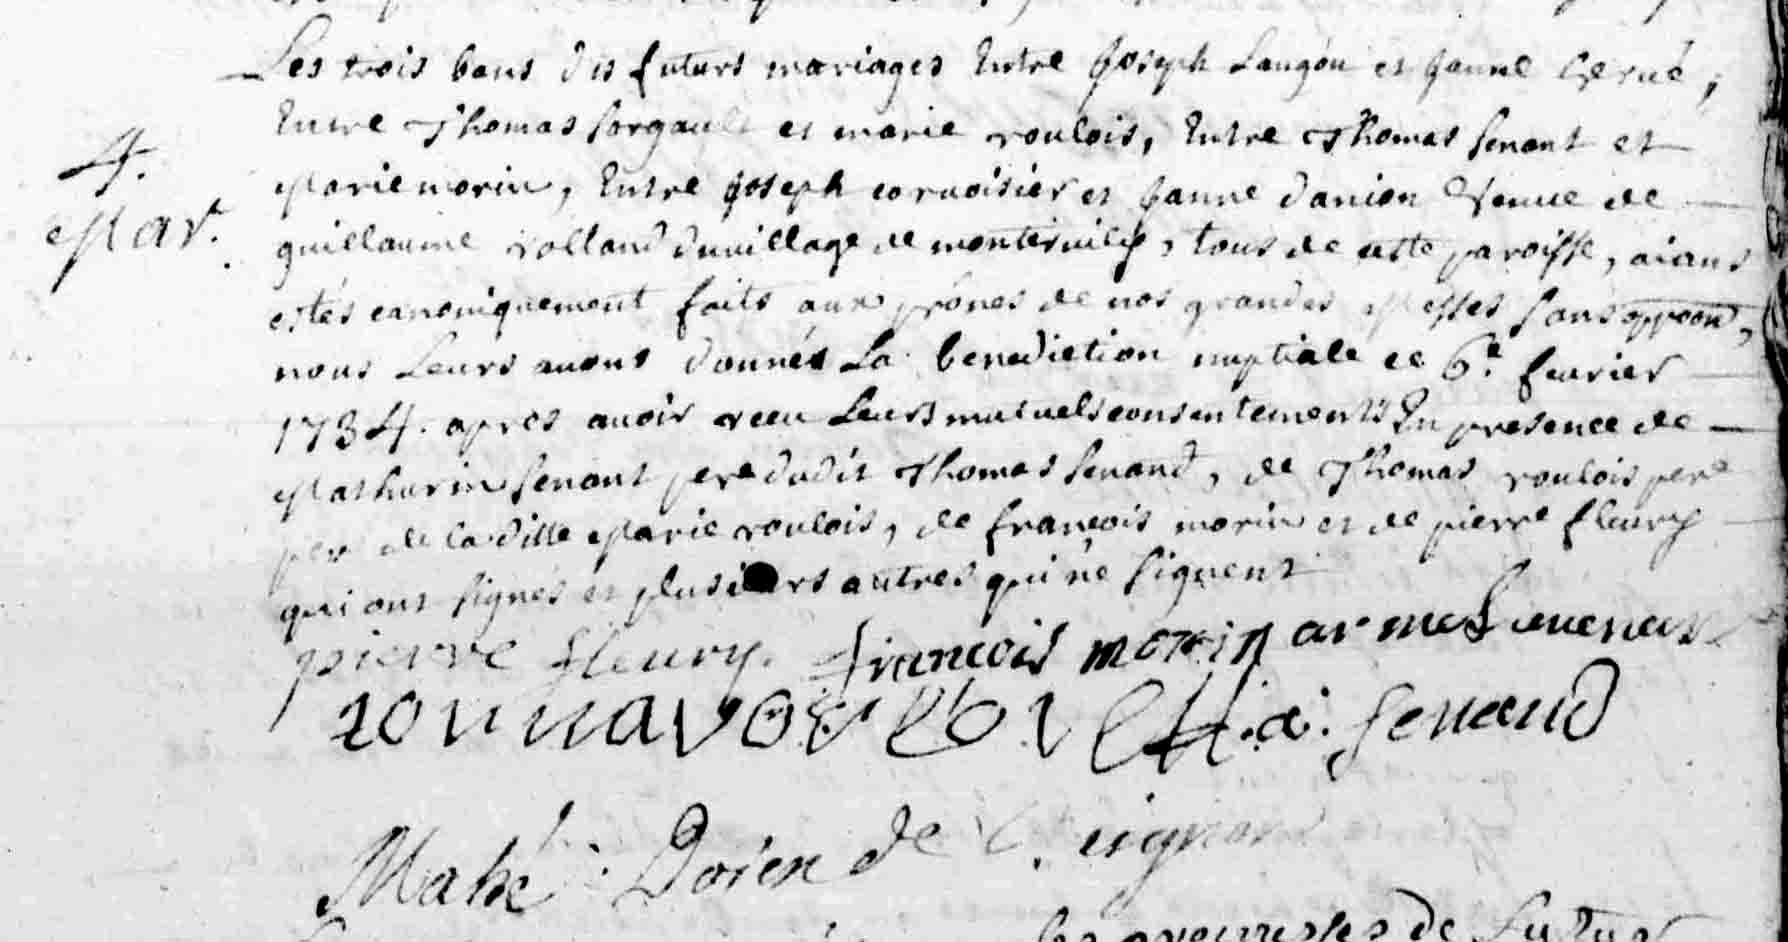 Les trois bans des futurs mariages Entre Joseph Langou et Janne Hervé,
Entre Thomas Sorgault et marie roulois, Entre Thomas Senant et
4.
Mar.
Marie morin, Entre Joseph cornoisier et Janne danion Venue de
guillaume rolland du village de , tous de cette paroisse, aians
estés canoniquement faits aux prônes de nos grandes Messes sans oppoon,
nous Leurs avons donnés La benediction nuptiale ce 6e. fevrier
1734. apres avoir receu Leurs mutuels consentements En presence de
Mathurin Senant pere dudit Thomas Senand, de Thomas roulois pere
pere de la ditte Marie roulois, de françois morin et de pierre fleury
qui ont signés et plusieurs autres qui ne signent
pierre fleury. francois morin
M. a. Senand
Mahé. Doien de
les promesses de futur